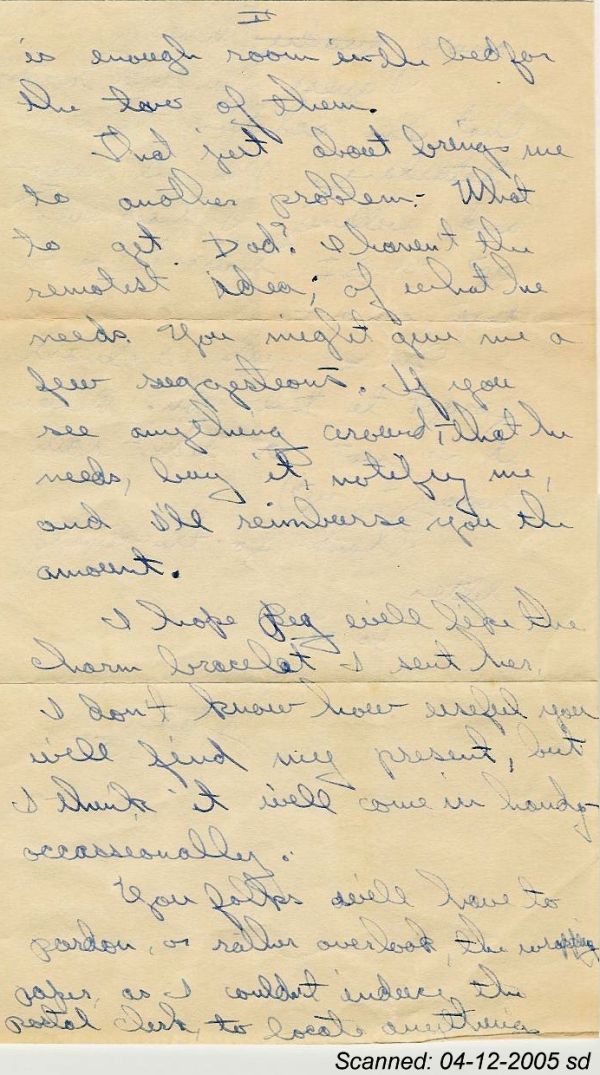 II
is enough room in the bed for
the two of them.
That just about brings me
to another problem - What
to get Dad? I haven't the
remotest idea, of what he
needs. You might give me a
few suggestions. If you
see anything around, that he
needs, buy it, notify me,
and I'll reimburse you the
amount.
I hope Peg will like the
charm bracelat I sent her.
I don't know how useful you
will find my present, but
I think it will come in handy
occassionally.
You folks will have to
pardon, or rather overlook, the wrapping
paper, as I couldn't induce the
postal clerk, to locate anything
Scanned: 04-12-2005 sd